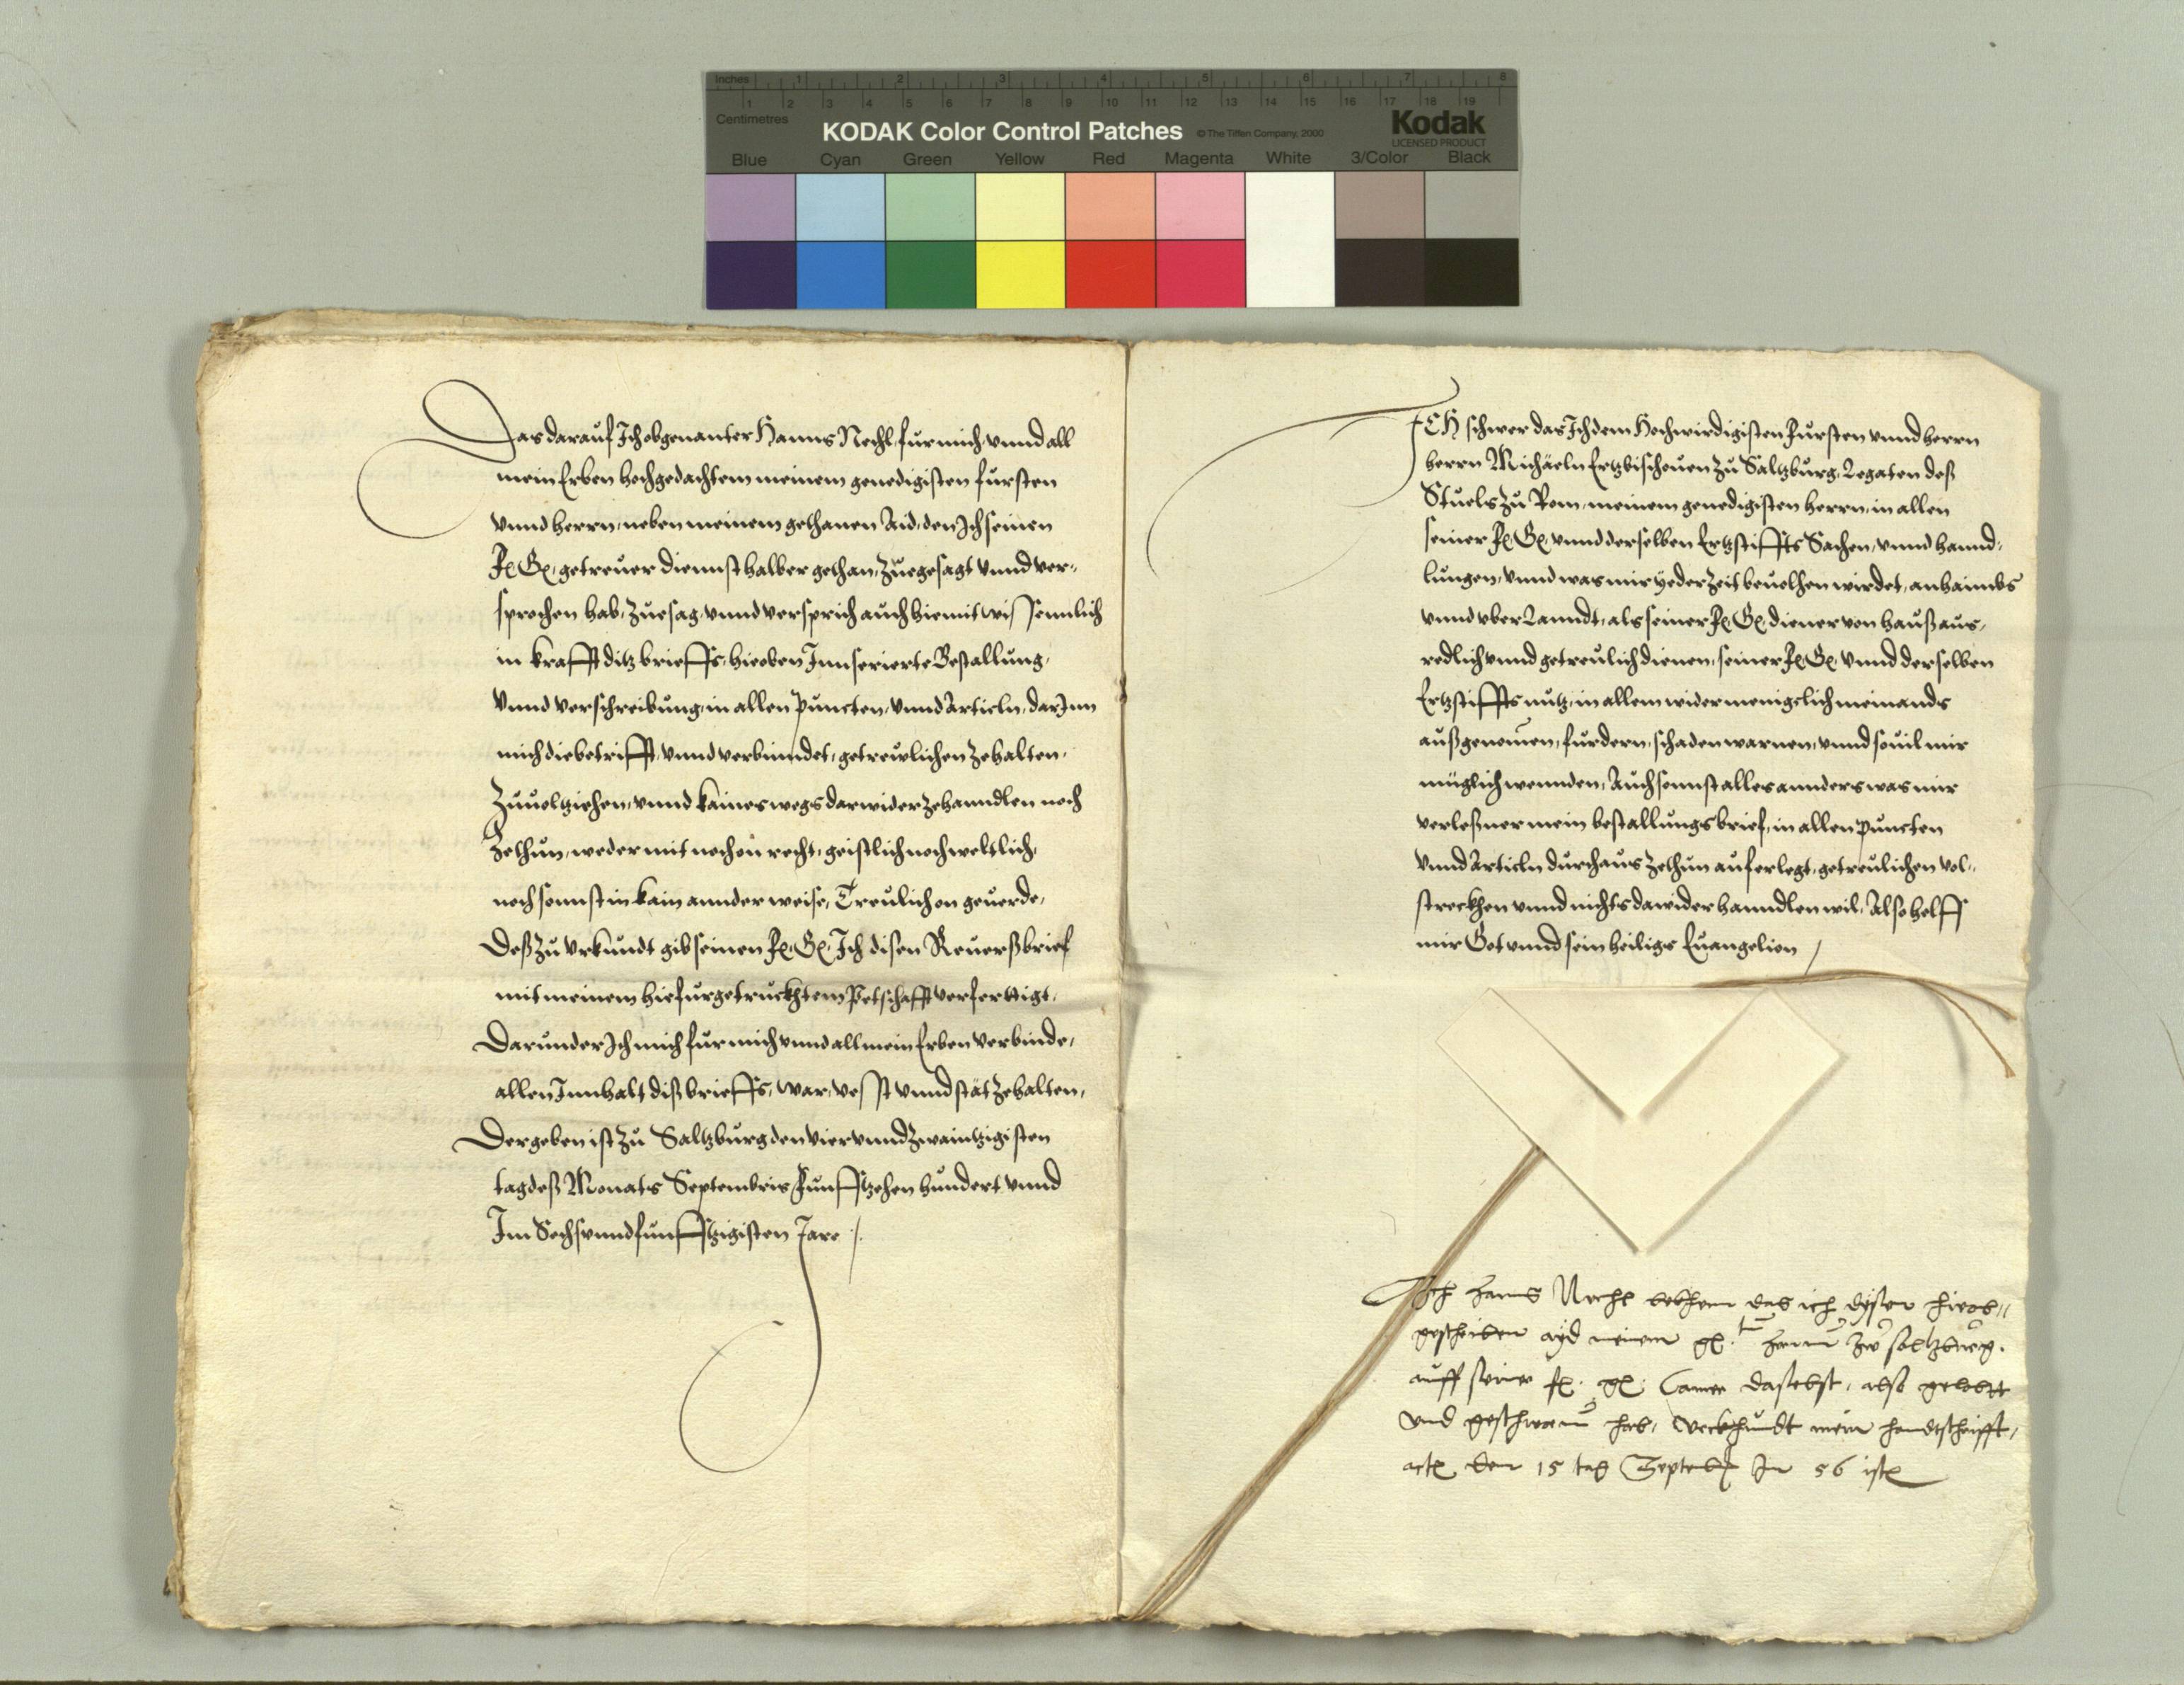 Inches 1 2 3 4 5 6 7 8
1 2 3 4 5 6 7 8 9 10 11 12 13 14 15 16 17 18 19
Centimetres
KODAK Color Control Patches © The Tiffen Company, 2000 Kodak
LICENSED PRODUCT
Blue Cyan Green Yellow Red Magenta White 3/Color Black
Das darauf Ich obgenanter Hanns Nechl, fur mich, vnnd all
mein Erben hochgedachtem meinem genedigisten fursten
vnnd herrn, neben meinem gethanen Aid, den Ich seinen
F. G. getreuer diennst halber gethan, Zuegesagt vnnd ver-
sprochen hab, Zuesag, vnnd versprich auch hiemit wissennlich
in krafft ditz brieffs, hieoben Innserierte Bestallung,
vnnd verschreibung, in allen puncten, vnnd Articln, darInn
mich die betrifft, vnnd verbindet, getrewlichen zehalten,
Zuuolziehen, vnnd kaines wegs darwider zehanndlen noch
Zethun, weder mit noch on recht, geistlich noch weltlich,
noch sonnst in kain annder weise, Treulich on geuerde,
Deß zu Vrkundt gib seinen F. G. Ich disen Reuerßbrief
mit meinem hiefurgetruckhtem Petschafft verferttigt,
Darunder Ich mich fur mich vnnd all mein Erben verbinde,
allen Innhalt diß brieffs, war, vesst vnnd stät zehalten,
Der geben ist zu Saltzburg den vier vnnd zwaintzigisten
tag deß Monats Septembris Funffzehen hundert vnnd
Im Sechsvnndfunfftzigisten Jare /.
ICH schwer das Ich dem Hochwirdigisten Fursten vnnd herrn
herrn Michäeln Ertzbischouen zu Saltzburg, Legaten deß
Stuels zu Rom, meinem genedigisten herrn, in allen
seiner F. G. vnnd derselben Ertzstiffts Sachen, vnnd hannd-
lungen, vnnd was mir yeder Zeit beuolhen wirdet, anhaimbs
vnnd vber Lanndt, als seiner F. G. diener von hauß aus,
redlich vnnd getreulich dienen, seiner F. G. vnnd derselben
Ertzstiffts nutz, in allem wider menigclich niemands
außgenomen, furdern, schaden warnen, vnnd souil mir
müglich wennden, Auch sonnst alles annders was mir
verleßner mein bestallungsbrief, in allen puncten
vnnd Articln durchaus zethun auferlegt, getreulichen vol-
streckhen vnnd nichts dawider hanndlen wil, Also helff
mir Got vnnd sein heiligs Euangelion /
Ich hanns Nechl bekhenn das ich dysen hieob-
geschriben ayd meinem g. herrn zw saltzburg.
auff seiner f. g. Camer daselbst, also gelobtt
vnd geschworn hab, Vrckhundt mein handtschrifft,
den 15 tag Septeb Im 56 istē